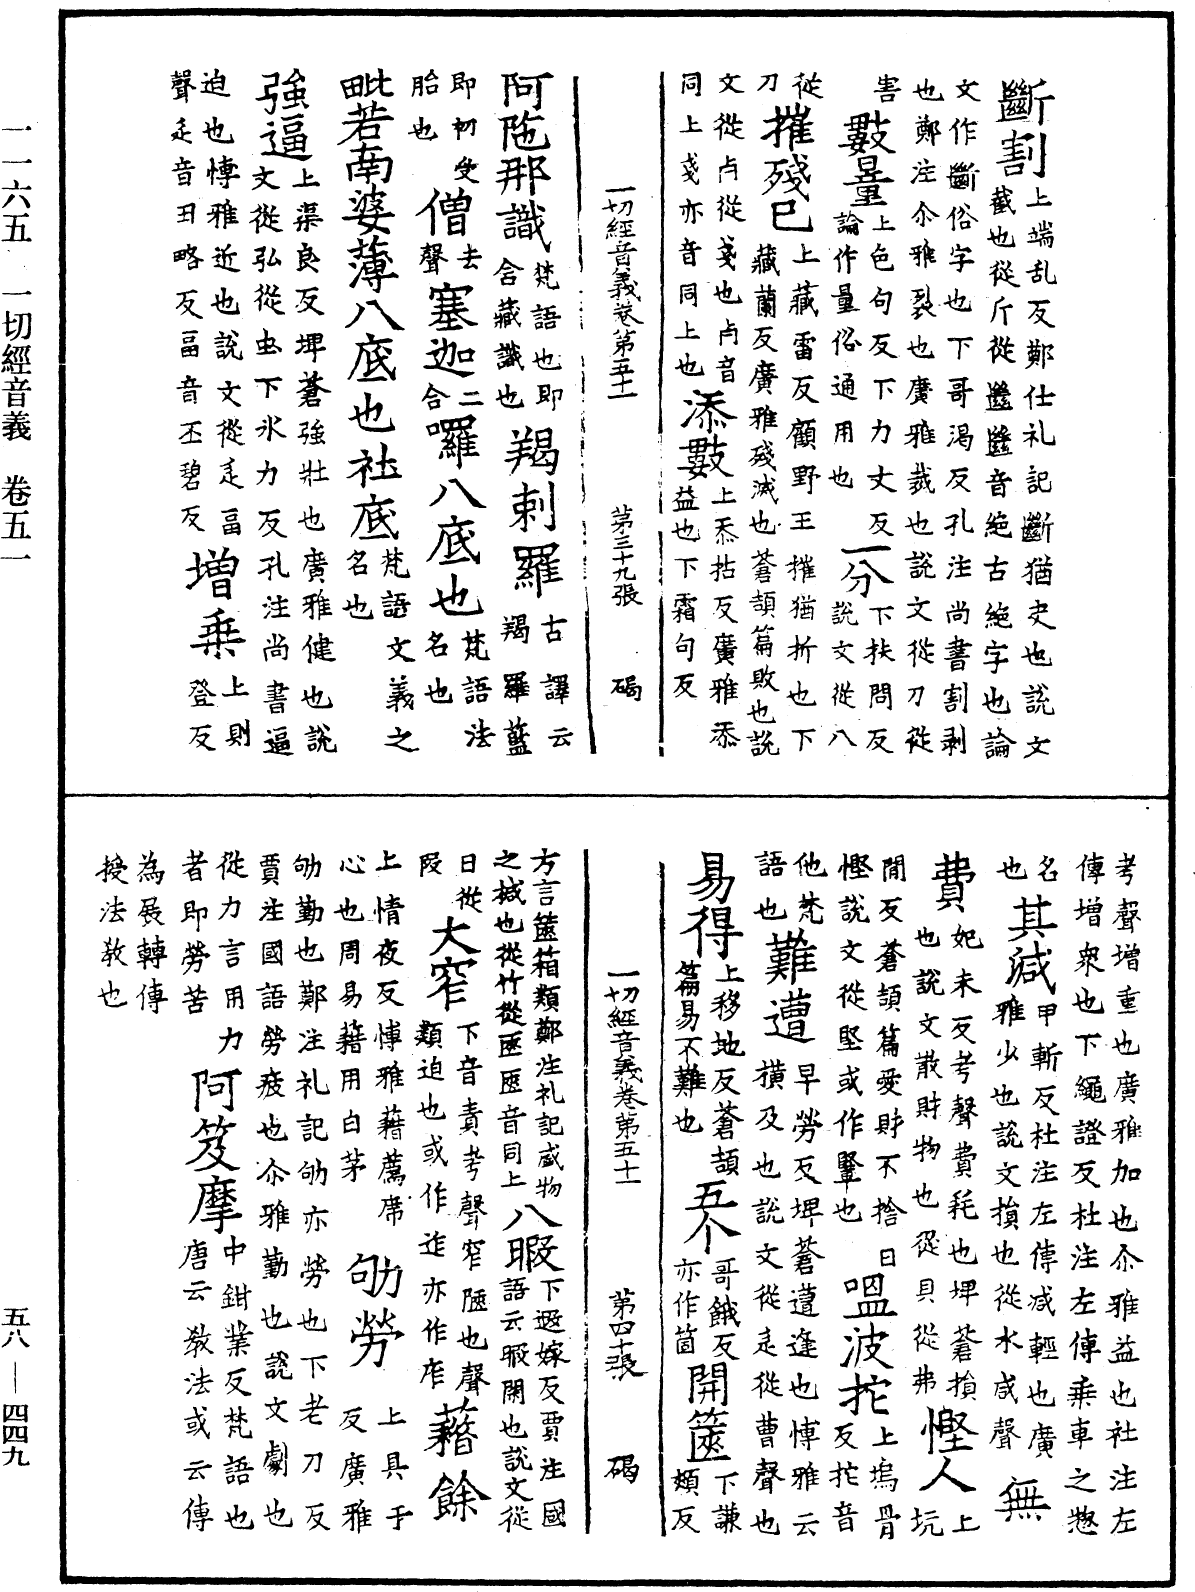 一一六五 一切經音義 卷五一
五八—四四九
斷割上端乱反鄭仕礼記斷猶史也說文
截也從斤從𢇍𢇍音絶古絶字也論
文作斷俗字也下哥渴反孔注尚書割剥
也鄭注尒雅裂也廣雅裁也說文從刀從
害 數量上色句反下力丈反 一分下扶問反
論作量俗通用也 說文從八
從 摧殘已上藏雷反顧野王摧猶折也下
刀 藏蘭反廣雅殘滅也蒼頡篇敗也說
文從歺從戔也歺音 添數上忝拈反廣雅添
同上戔亦音同上也 益也下霜句反
一切經音義卷第五十一 第三十九張 碣
阿陁那識梵語也即 羯剌羅古譯云
含藏識也 羯羅藍
即初受 僧去 塞迦二 囉八底也梵語法
胎也 聲 合 名也
毗若南婆薄八底也社底梵語 文義之
名也
強逼上渠良反埤蒼強壯也廣雅健也說
文從弘從虫下氷力反孔注尚書逼
迫也慱雅近也說文從辵畐 增乗上則
聲辵音丑略反畐音丕碧反 登反
考聲增重也廣雅加也尒雅益也社注左
傳增衆也下繩證反杜注左傳乗車之惣
名 其減甲斬反杜注左傳减輕也廣 無
也 雅少也說文損也從水咸聲
費妃未反考聲費耗也埤蒼損 慳人上
也說文散財物也從貝從弗 坑
閒反蒼頡篇愛財不捨曰 嗢波拕上塢骨
慳說文從堅或作㹂也 反拕音
他梵 難遭早勞反埤蒼遭逢也慱雅云
語也 㩴及也說文從辵從曹聲也
易得上移地反蒼頡 五个哥餓反 開篋下謙
篇易不難也 亦作箇 頰反
一切經音義卷第五十一 第四十張 碣
方言篋箱類鄭注礼記盛物 八暇下遐嫁反賈注國
之椷也從竹從匧匧音同上 語云暇閑也說文從
日從 大窄下音責考聲窄陋也聲 藉餘
叚 類迫也或作迮亦作厏
上情夜反慱雅藉薦席 劬勞上具于
心也周易藉用白茅 反廣雅
劬勤也鄭注礼記劬亦勞也下老刀反
賈注國語勞疲也尒雅勤也說文劇也
從力言用力 阿笈摩中鉗業反梵語也
者即勞苦 唐云教法或云傳
為展轉傳
授法教也